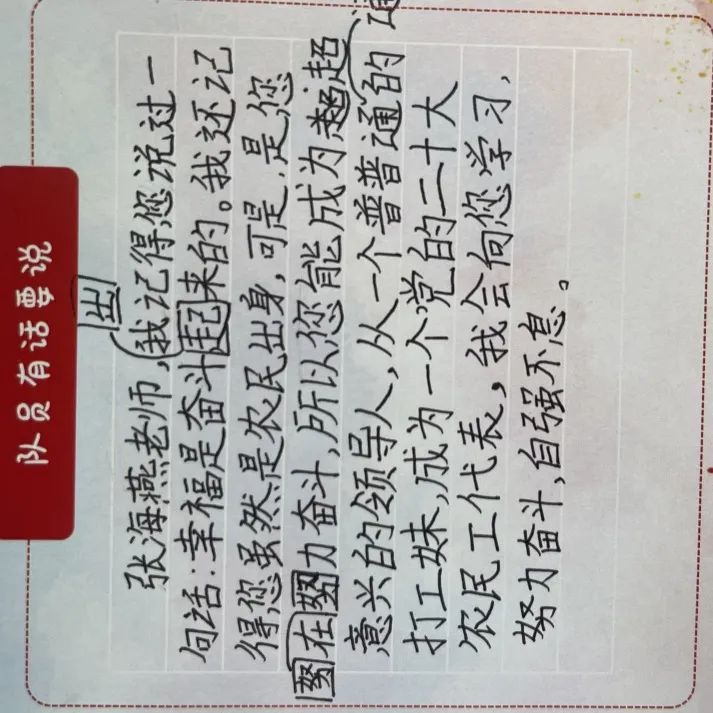 队员有话要说
出
张海燕老师,我记得您说过一
句话:幸福是奋斗起来的。我还记
得您虽然是农民出身,可是,是您
努在努力奋斗,所以您能成为超
意兴的领导人,从一个普普通的
打工妹,成为一个党的二十大
农民工代表,我会向您学习,
努力奋斗,自强不息。